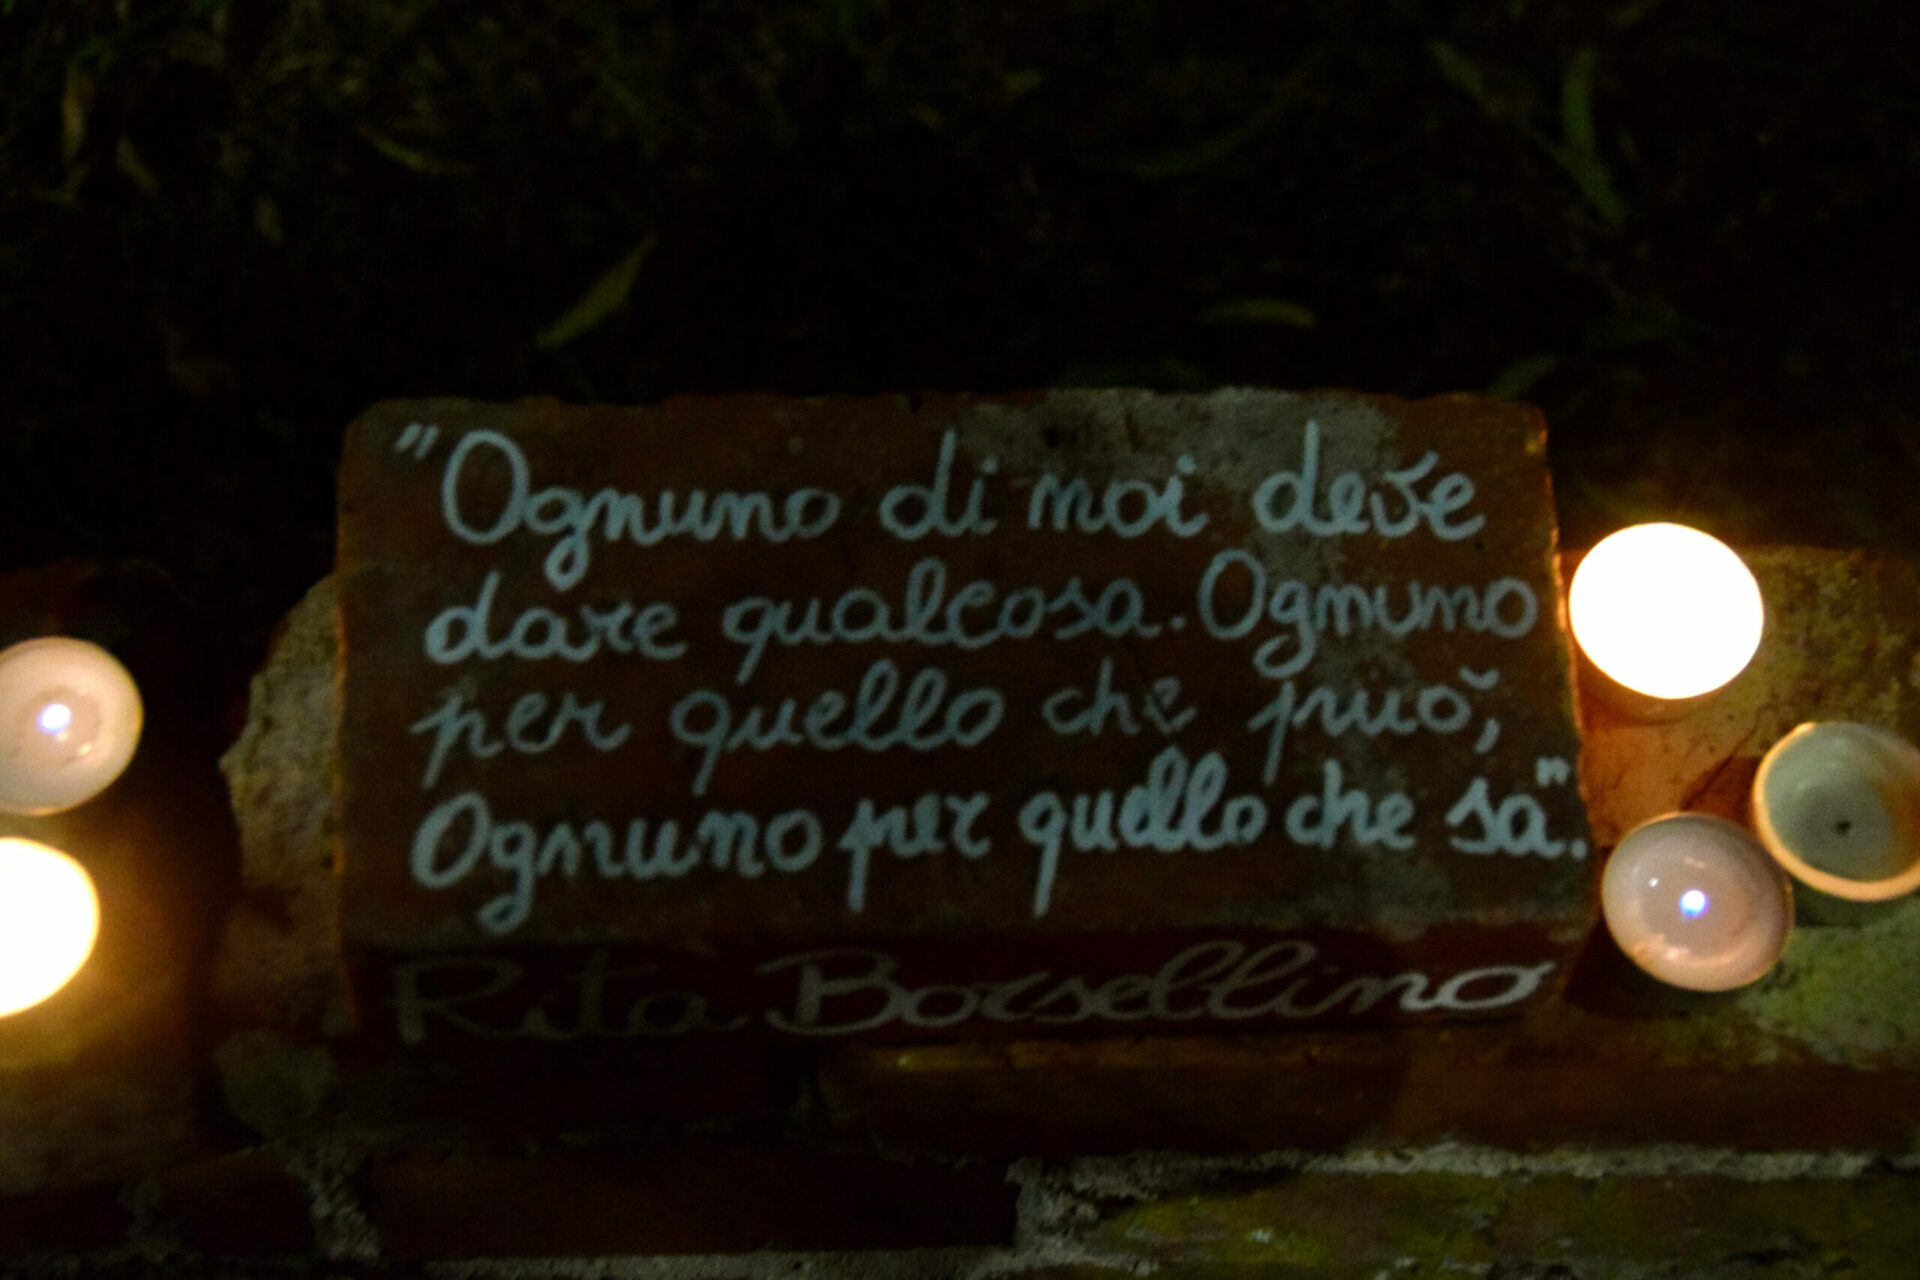 "Ognuno di noi deve
dare qualcosa. Ognuno
per quello che può,
Ognuno per quello che sa".
Rita Borsellino